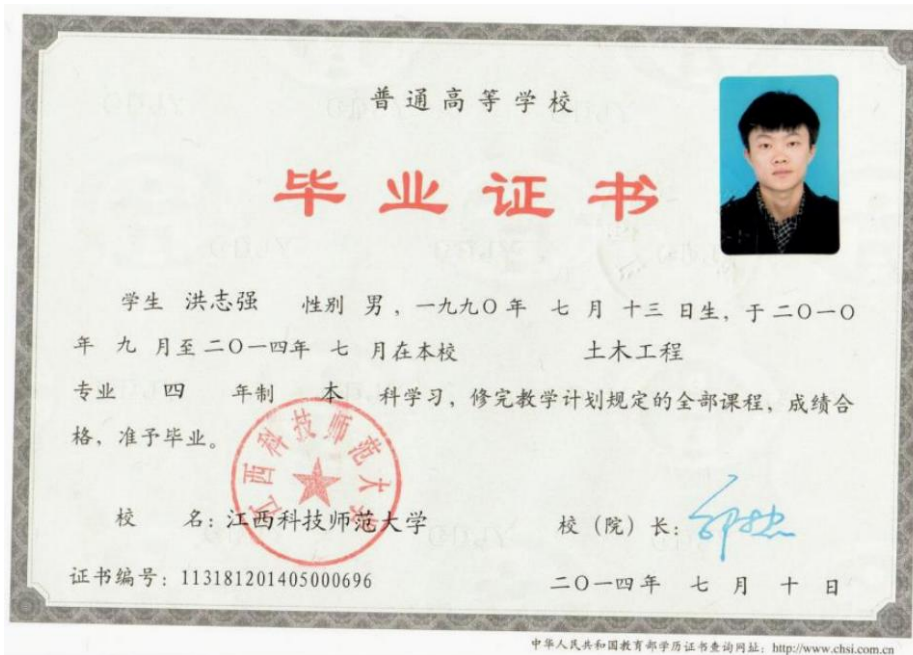 普通高等学校
毕业证书
学生 洪志强 性别 男，一九九〇年 七 月 十三 日生，于二〇一〇
年 九 月至二〇一四年 七 月在本校 土木工程
专业 四 年制 本 科学习，修完教学计划规定的全部课程，成绩合
格，准予毕业。
江西科技师范大学
校 名：江西科技师范大学 校（院）长：
证书编号：113181201405000696 二〇一四年 七 月 十 日
中华人民共和国教育部学历证书查询网址：http://www.chsi.com.cn